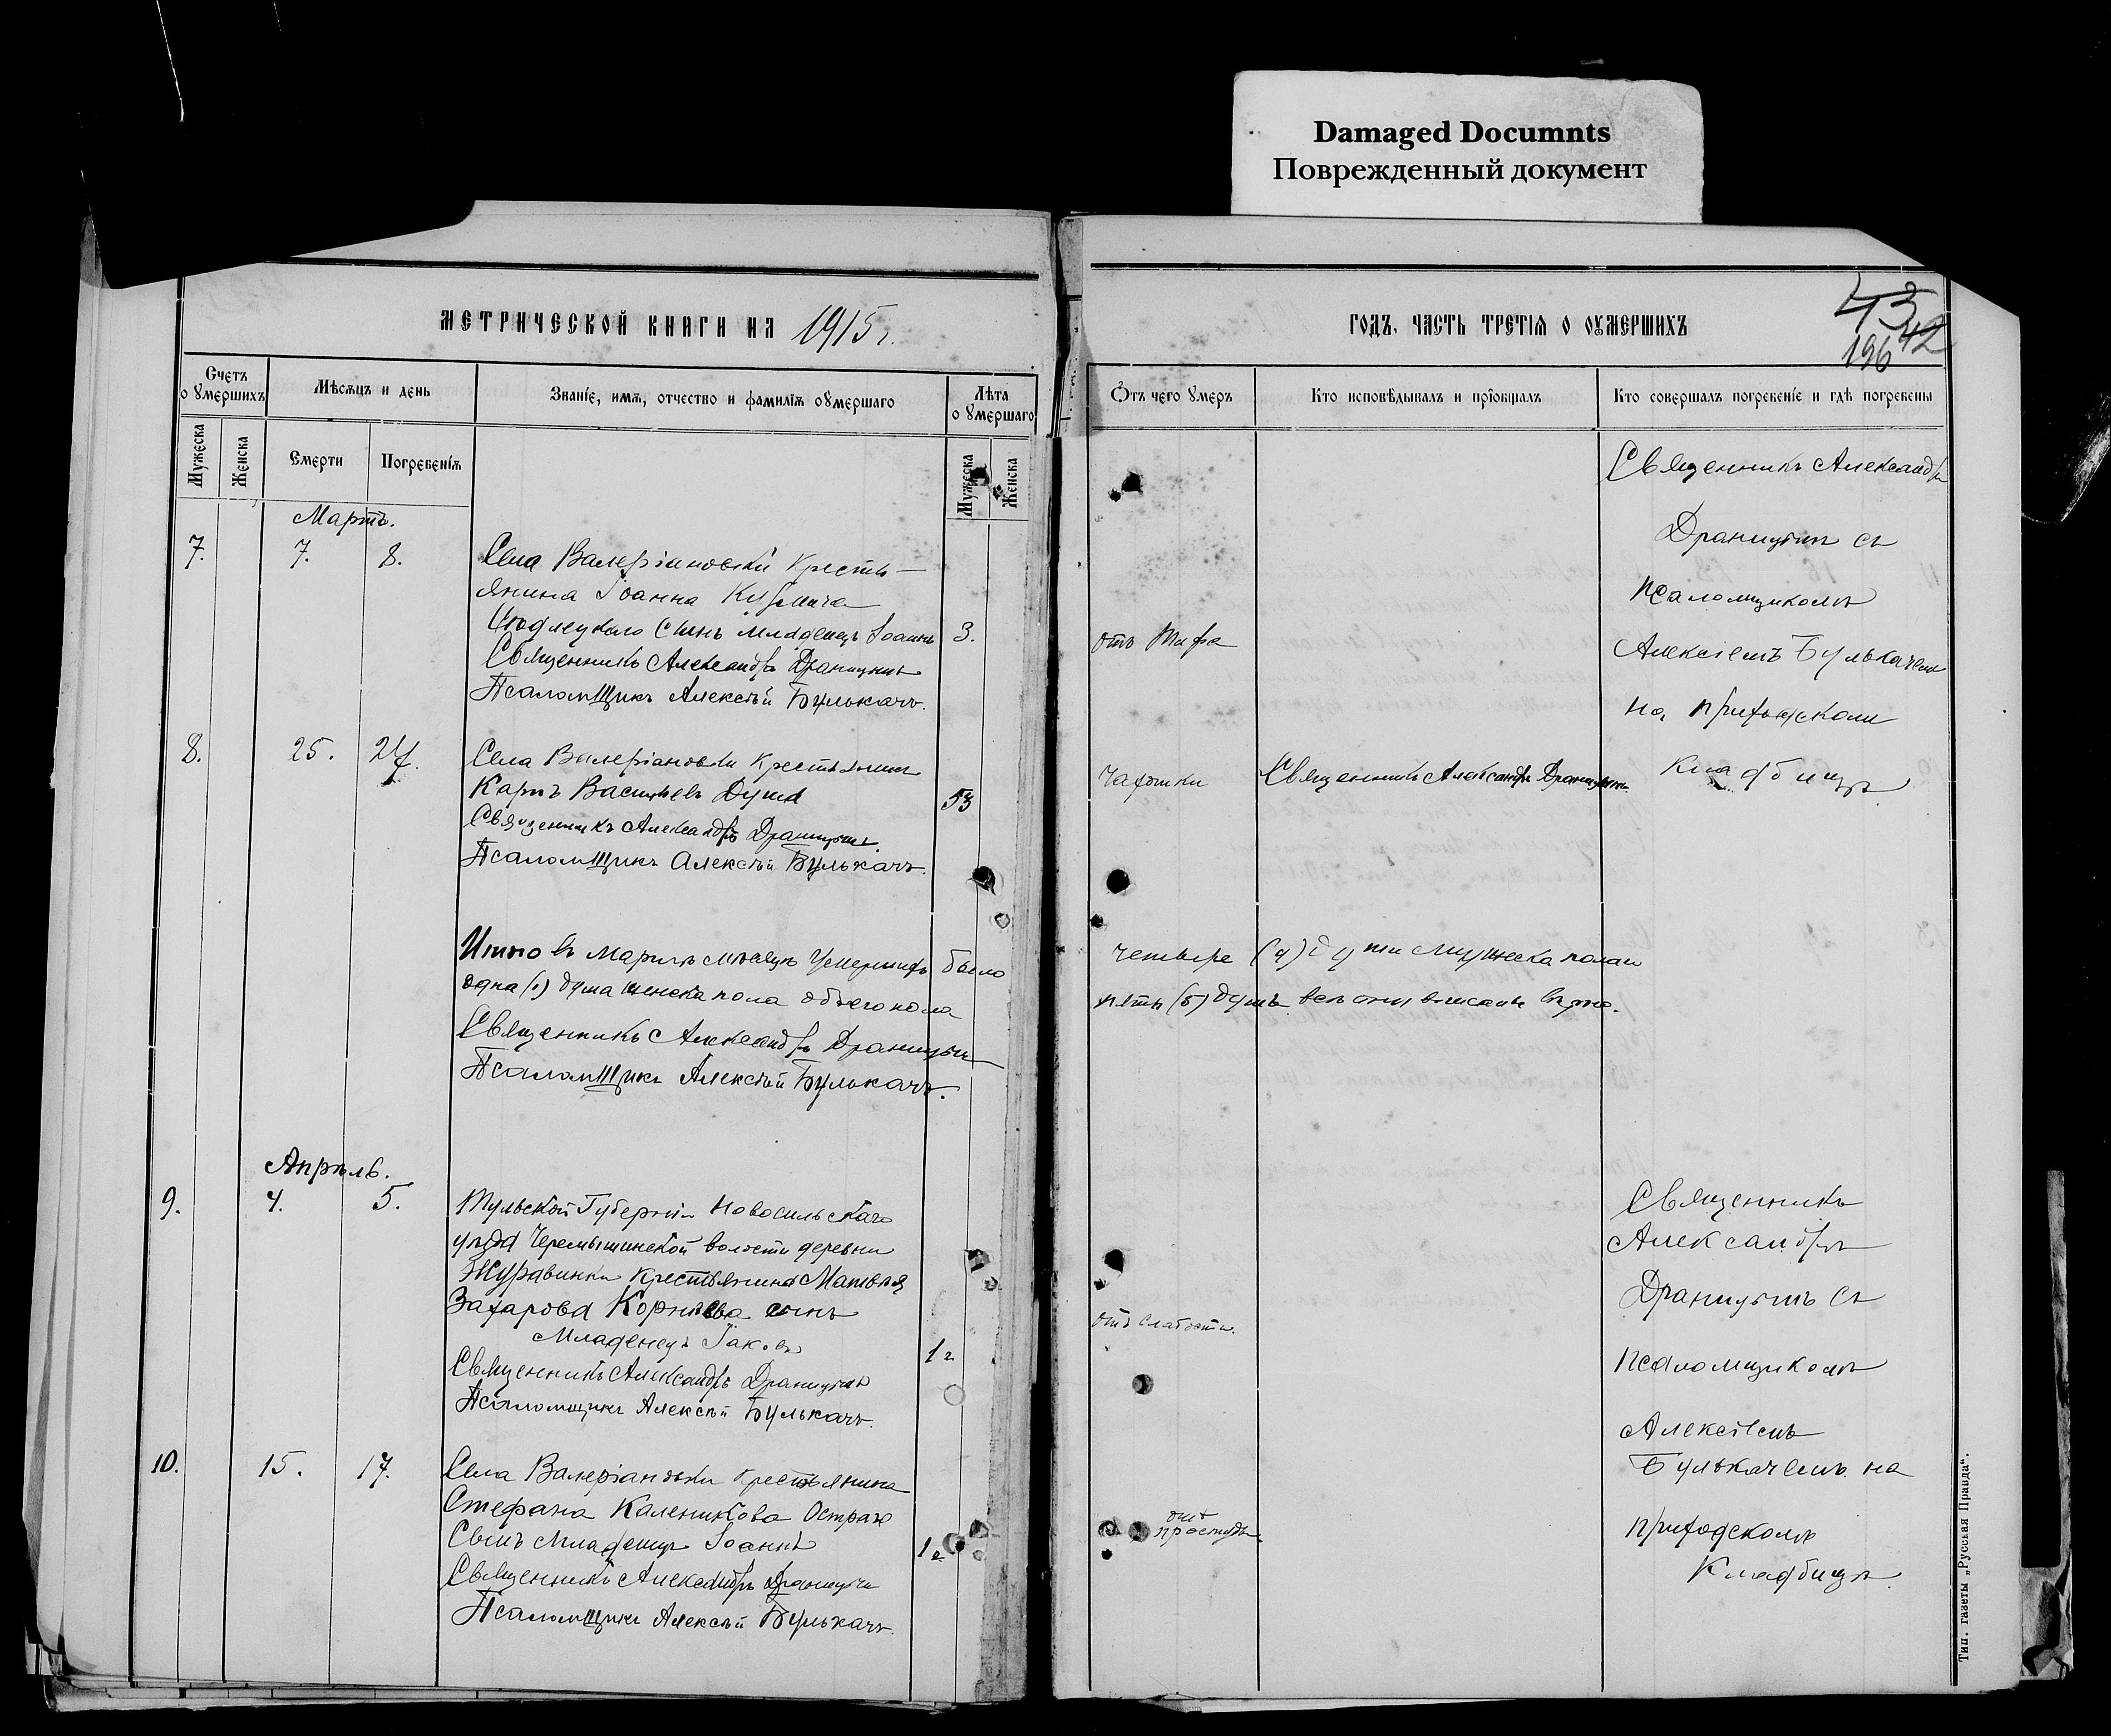 Damaged Documnts
Поврежденный документ
МЕТРИЧЕСКОЙ КНИГИ НА 1915 г.
Счетъ о умершихъ
Мѣсяцъ и день
Званіе, имя, отчество и фамилія оумершаго
Лѣта оумершаго
Мужеска
Женска
Смерти
Погребенія
Мужеска
Женска
Мартъ.
7. 7. 8. Села Валеріановки кресть-
янина Іоанна
сынъ младенецъ Іоаннъ 3.
Священникъ Александръ Драницынъ
Псаломщикъ Алексѣй Булькачъ.
8. 25. 27. Села Валеріановки крестьянинъ
Карпъ Васильевъ Душа 53
Священникъ Александръ Драницынъ.
Псаломщикъ Алексѣй Булькачъ.
Итого въ Мартѣ мѣсяцѣ умершихъ было
одна (1) душа женска пола обоего пола
Священникъ Александръ Драницынъ
Псаломщикъ Алексѣй Булькачъ.
Апрѣль.
9. 4. 5. Тульской Губерніи Новосильскаго
уѣзда Черемышинской волости деревни
Журавинки крестьянина Матвѣя
Захарова Корнѣева сынъ
Младенецъ Іаковъ 1 г
Священникъ Александръ Драницынъ
Псаломщикъ Алексѣй Булькачъ.
10. 15. 17. Села Валеріановки крестьянина
Стефана Каленикова
Сынъ Младенецъ Іоаннъ 1 г
Священникъ Александръ Драницынъ
Псаломщикъ Алексѣй Булькачъ.
ГОДЪ, ЧАСТЬ ТРЕТІЯ О ОУМЕРШИХЪ
43
42
196
Отъ чего умеръ
Кто исповѣдывалъ и пріобщалъ
Кто совершалъ погребеніе и гдѣ погребены
Священникъ Александръ
Драницынъ съ
псаломщикомъ
отъ тифа
Алексіемъ Булькачемъ
на приходскомъ
чахотки Священникъ Александръ Драницынъ. кладбищѣ.
четыре (4) души мужеска пола и
пять (5) душъ вписаны вѣрно.
Священникъ
Александръ
Драницынъ съ
отъ слабости.
псаломщикомъ
Алексіемъ
Булькачемъ на
отъ простуды.
приходскомъ
Кладбищѣ.
Тип. газеты „Русская Правда“.